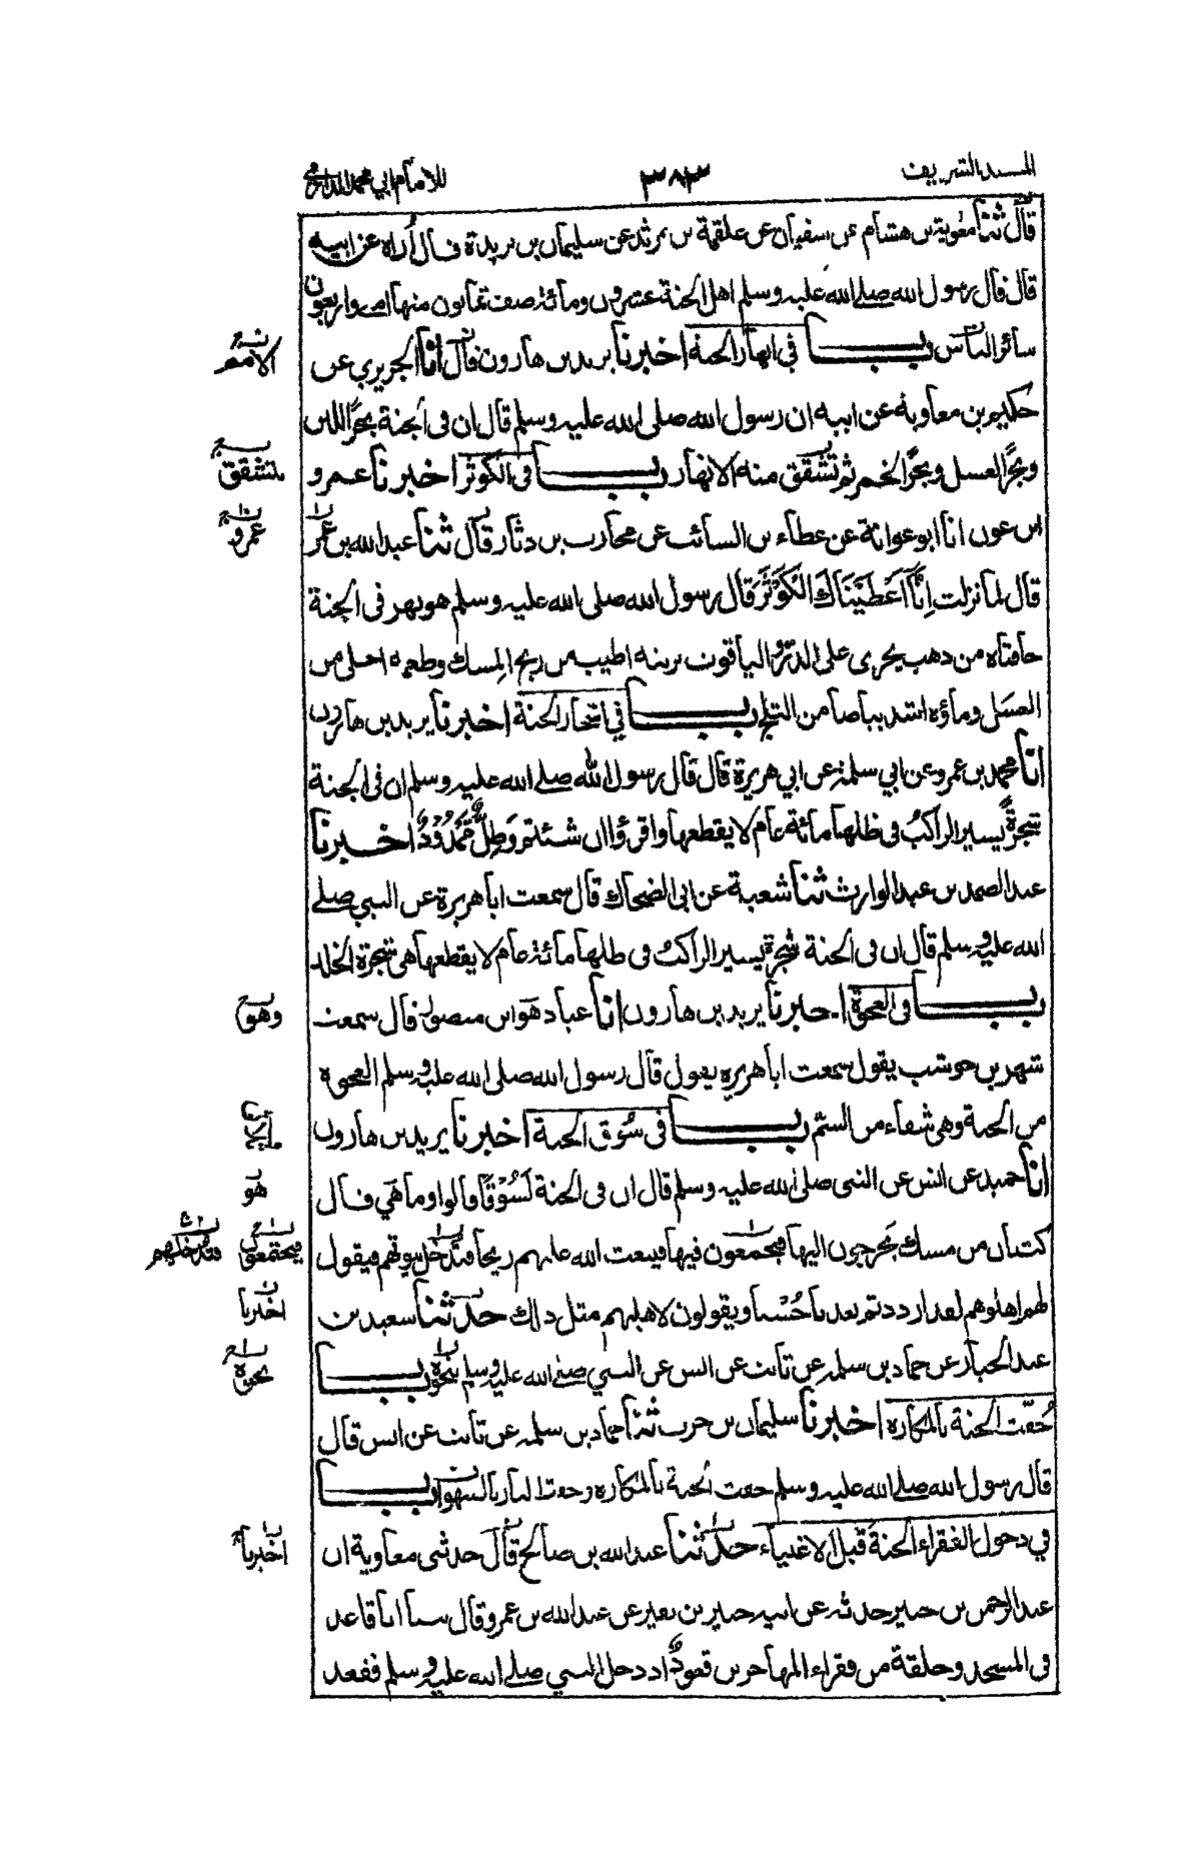 المسند الشريف ٣٨٣ للامام ابي محمد الدارمي
قال ثنا معوية بن هشام عن سفيان عن علقمة بن مرثد عن سليمان بن بريدة قال أراه عن ابيه
قال قال رسول الله صلے الله عليه وسلم اهل الجنة عشرون ومائة صف ثمانون منها امتى واربعون
سائر الناس باب في انهار الجنة اخبرنا يزيد بن هارون قال انا الجريري عن
حكيم بن معاوية عن ابيه ان رسول الله صلى الله عليه وسلم قال ان فى الجنة بحر اللبن
وبحر العسل وبحر الخمر ثم تشقق منه الانهار باب فى الكوثر اخبرنا عمرو
بن عون انا ابو عوانة عن عطاء بن السائب عن محارب بن دثار قال ثنا عبد الله بن عمر
قال لما نزلت اِنَّآ اَعْطَيْنَاكَ الْكَوْثَرَ قال رسول الله صلى الله عليه وسلم هو نهر فى الجنة
حافتاه من ذهب يجرى على الدر والياقوت تربته اطيب من ريح المسك وطعمه احلى من
العسل وماؤه اشد بياضا من الثلج باب في اشجار الجنة اخبرنا يزيد بن هارون
انا محمد بن عمرو عن ابي سلمة عن ابي هريرة قال قال رسول الله صلے الله عليه وسلم ان فى الجنة
شجرةً يسير الراكبُ فى ظلها مائة عام لا يقطعها واقرؤا ان شئتم وَظِلٍّ مَّمْدُوْدٍ اخبرنا
عبد الصمد بن عبد الوارث ثنا شعبة عن ابى الضحاك قال سمعت ابا هريرة عن النبي صلے
الله عليه وسلم قال ان فى الجنة شجرة يسير الراكبُ فى ظلها مائة عام لا يقطعها هى شجرة الخلد
باب فى العجوة اخبرنا يزيد بن هارون انا عباد هو ابن منصور قال سمعت
شهر بن حوشب يقول سمعت ابا هريره يقول قال رسول الله صلى الله عليه وسلم العجوة
من الجنة وهى شفاء من السم باب فى سُوق الجنة اخبرنا يزيد بن هارون
انا حميد عن انس عن النبى صلى الله عليه وسلم قال ان فى الجنة لَسُوْقًا قالوا وما هي قال
كثبان من مسك يخرجون اليها فيجمعون فيها فيبعث الله عليهم ريحا فتدخل بيوتهم فيقول
لهم اهلوهم لقد ازددتم بعدنا حُسْنا ويقولون لاهليهم مثل ذلك حدثنا سعيد بن
عبد الجبار عن حماد بن سلمه عن ثابت عن انس عن النبي صلے الله عليه وسلم بنحوه باب
حُفّت الجنة بالمكاره اخبرنا سليمان بن حرب ثنا حماد بن سلمه عن ثابت عن انس قال
قال رسول الله صلے الله عليه وسلم حفت الجنة بالمكاره وحفت النار بالشهوات باب
في دخول الفقراء الجنة قبل الاغنياء حدثنا عبد الله بن صالح قال حدثنى معاوية ان
عبد الرحمن بن جبير حدثه عن ابيه جبير بن نفير عن عبد الله بن عمرو قال بينا انا قاعد
فى المسجد وحلقة من فقراء المهاجرين قعودٌ اذ دخل النبي صلے الله عليه وسلم فقعد
وهو
هو
اخبرنا
اخبرنا